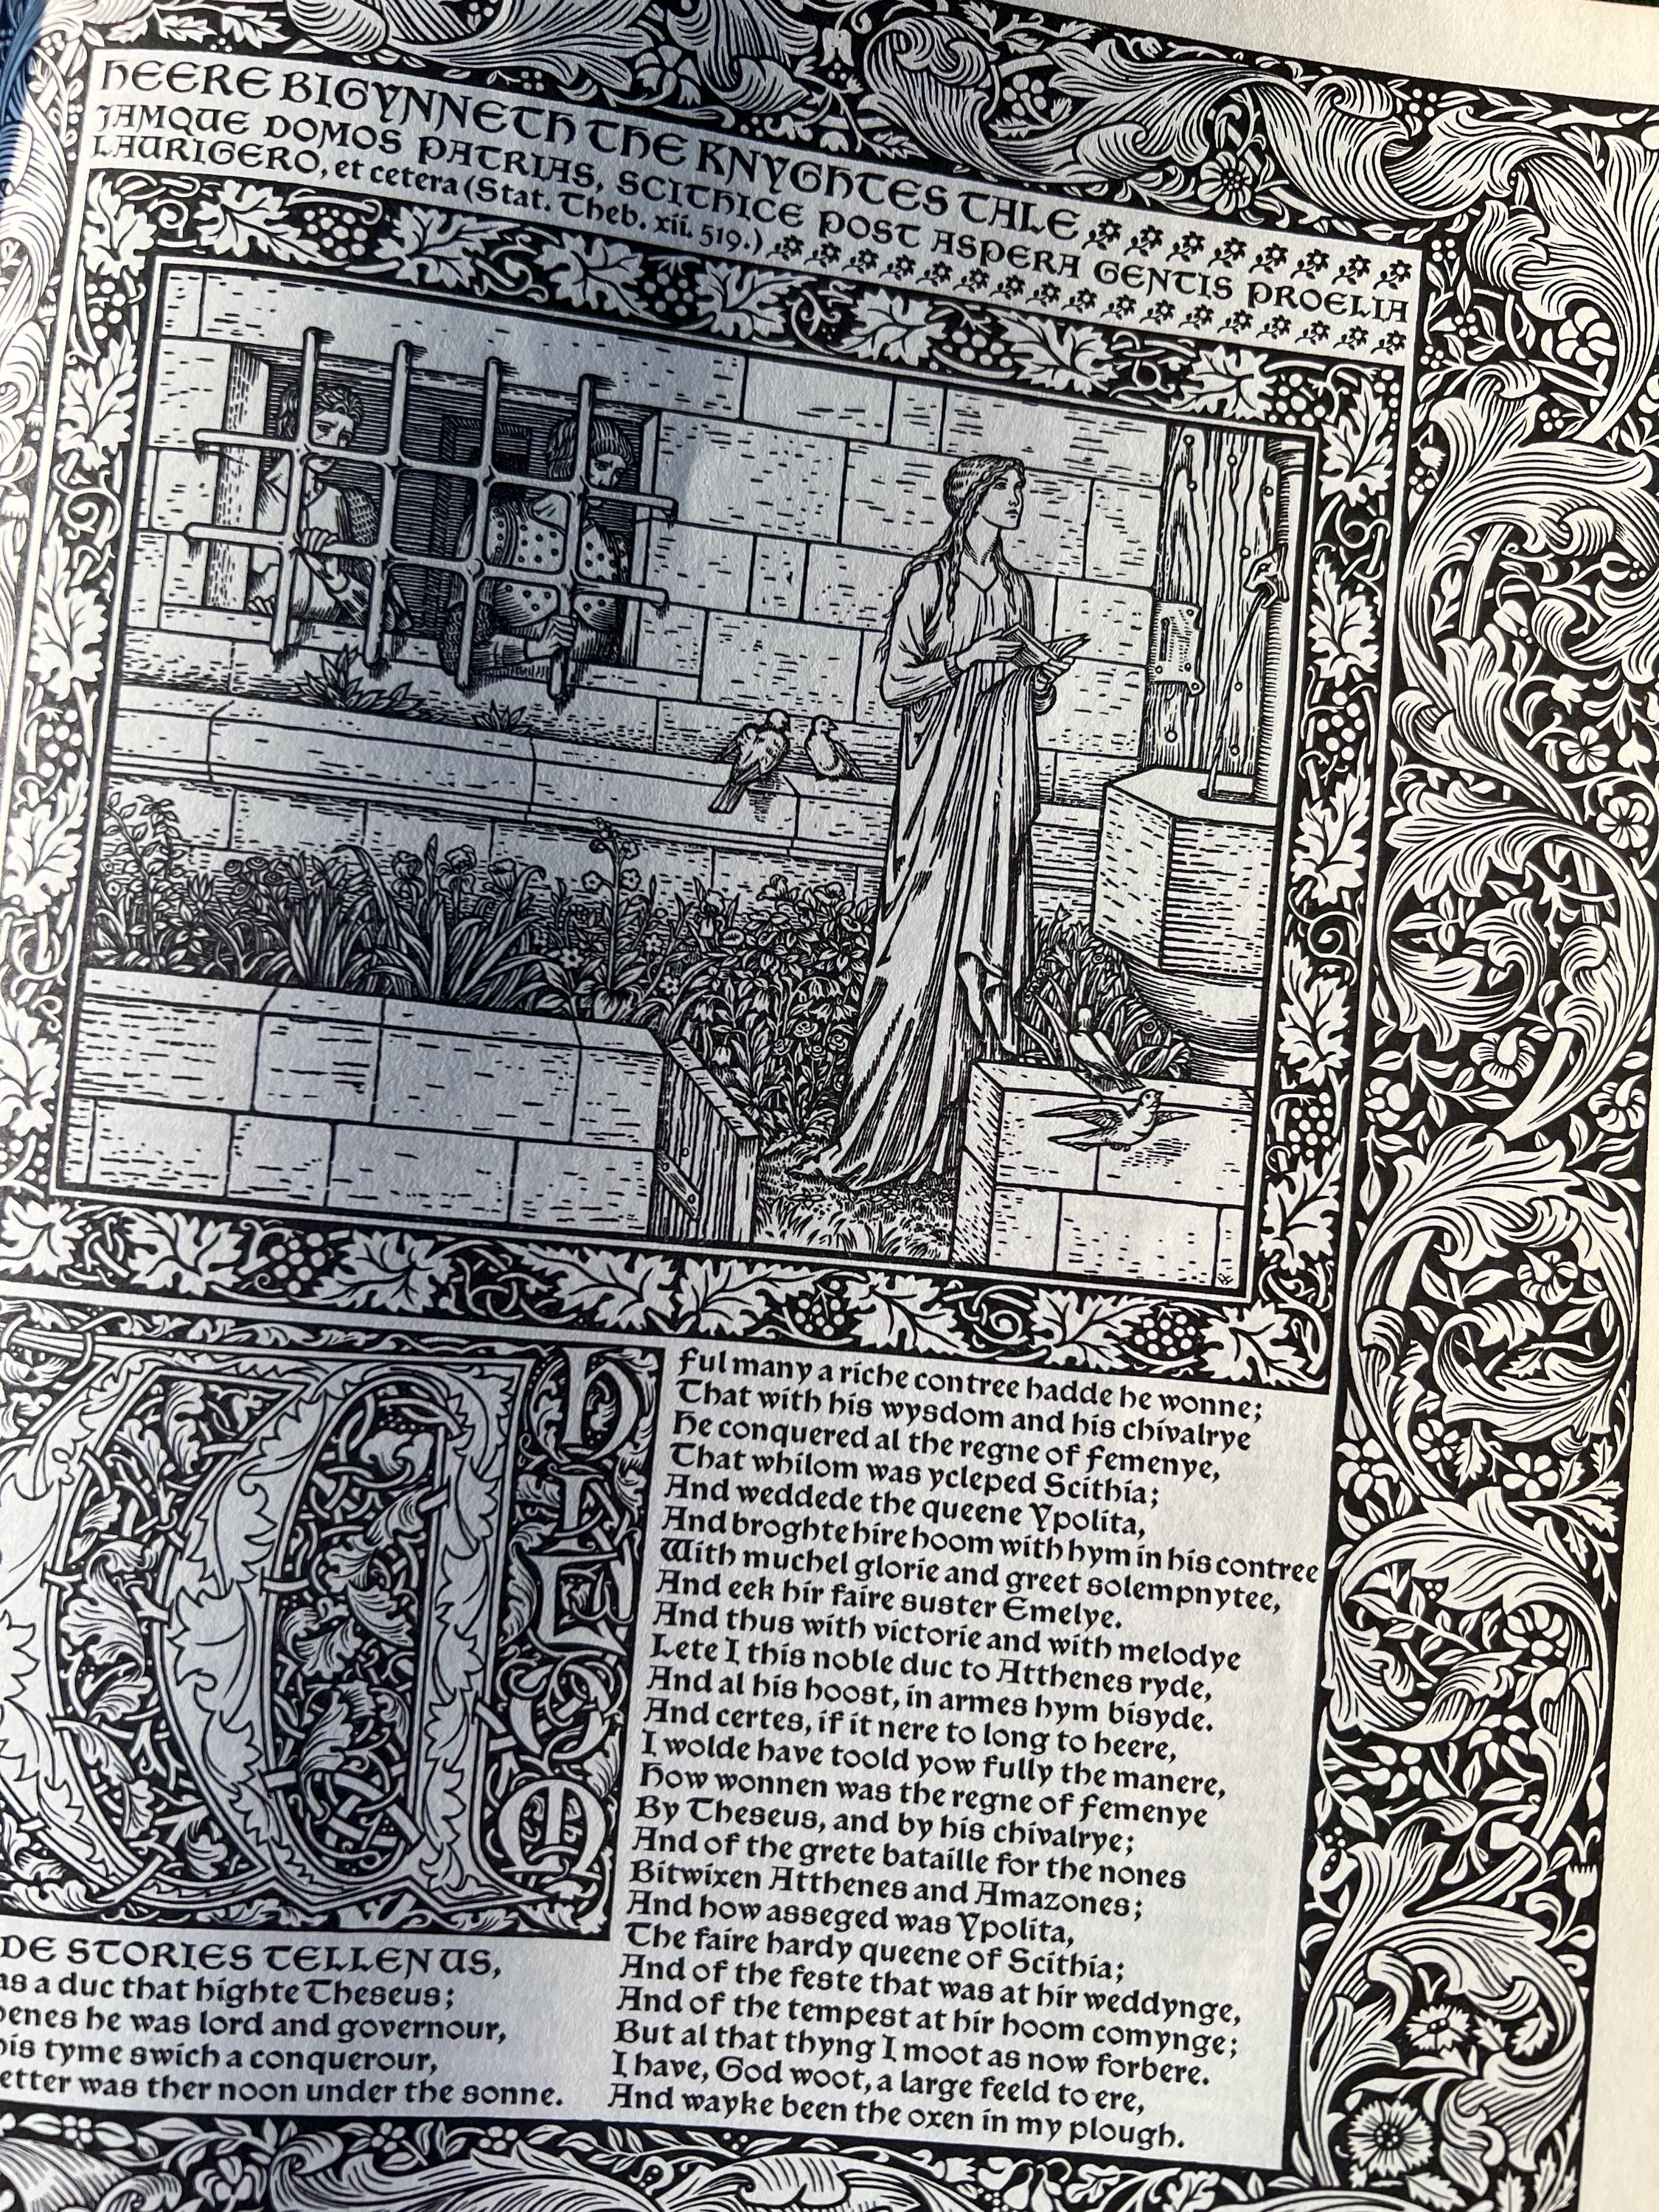 HEERE BIGYNNETH THE KNYGHTES TALE
JAMQUE DOMOS PATRIAS, SCITHICE POST ASPERA GENTIS PROELIA
LAURIGERO, et cetera (Stat. Theb. xii. 519.)
WHILOM
DE STORIES TELLEN US,
as a duc that highte Theseus;
henes he was lord and governour,
his tyme swich a conquerour,
etter was ther noon under the sonne.
Ful many a riche contree hadde he wonne;
That with his wysdom and his chivalrye
He conquered al the regne of Femenye,
That whilom was ycleped Scithia;
And weddede the queene Ypolita,
And broghte hire hoom with hym in his contree
With muchel glorie and greet solempnytee,
And eek hir faire suster Emelye.
And thus with victorie and with melodye
Lete I this noble duc to Atthenes ryde,
And al his hoost, in armes hym bisyde.
And certes, if it nere to long to heere,
I wolde have toold yow fully the manere,
How wonnen was the regne of Femenye
By Theseus, and by his chivalrye;
And of the grete bataille for the nones
Bitwixen Atthenes and Amazones;
And how asseged was Ypolita,
The faire hardy queene of Scithia;
And of the feste that was at hir weddynge,
And of the tempest at hir hoom comynge;
But al that thyng I moot as now forbere.
I have, God woot, a large feeld to ere,
And wayke been the oxen in my plough.